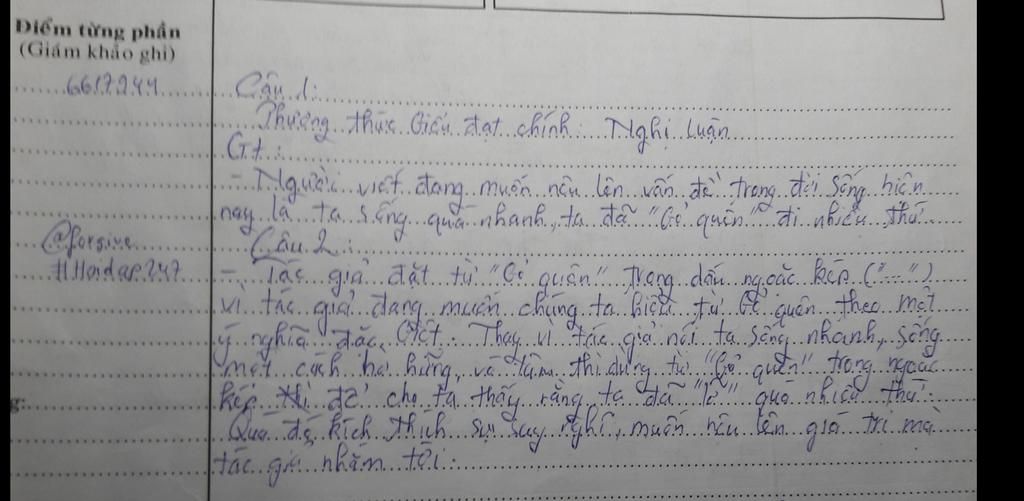 Điểm từng phần
(Giám khảo ghi)
6617244
Câu 1:
Phương thức biểu đạt chính: Nghị luận
Gt:
- Người viết đang muốn nêu lên vấn đề trong đời sống hiện
nay là ta sống quá nhanh, ta đã "bỏ quên" đi nhiều thứ.
@forsive
#Hoidap247
Câu 2:
- Tác giả đặt từ "bỏ quên" trong dấu ngoặc kép ("...")
vì tác giả đang muốn chúng ta hiểu từ bỏ quên theo một
ý nghĩa đặc biệt. Thay vì tác giả nói ta sống nhanh, sống
một cách hờ hững, vô tâm thì dùng từ "bỏ quên" trong ngoặc
kép để cho ta thấy rằng ta đã "lỡ" quá nhiều thứ.
Qua đó, kích thích sự suy nghĩ, muốn nêu lên giá trị mà
tác giả nhắm tới.
g: